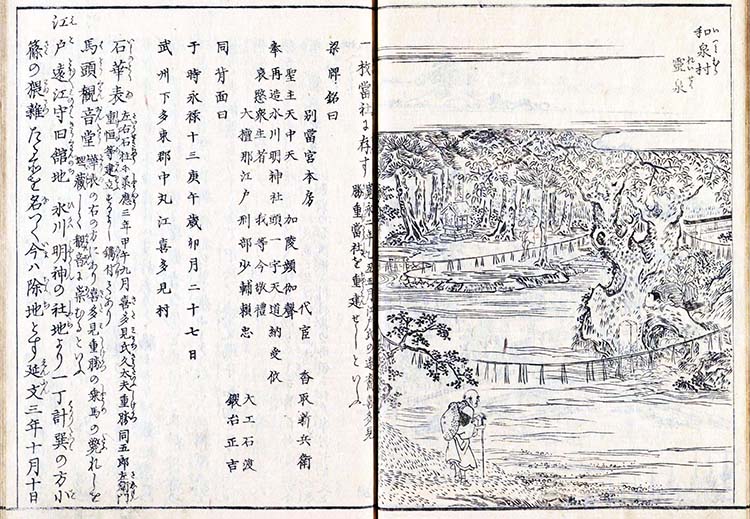 和泉村
靈泉
いつミむら
れいせん
一枚當社に存す 寛永二年乙丑三月江戸氏の遠裔喜多見
勝重當社を重建せしといふ
梁牌銘曰
別當宮本房 代官 香取新兵衛
聖主天中天 加陵頻伽聲
奉再造氷川明神社頭一宇天道納受依 大工石渡
哀愍衆生者 我等今敬禮
大檀那江戸刑部少輔頼忠 鍛冶正吉
同背面曰
于時永禄十三庚午歳卯月二十七日
武州下多東郡中丸江喜多見村
石華表 左右石柱に承應三年甲午九月喜多見氏久太夫重勝同五郎左衛門
重恒等建立 鐫付てあり
馬頭観音堂 華表の右の方にあり喜多見重勝の乗馬の斃れしを
埋蔵し觀音に崇むるといふ
江戸遠江守旧舘地 氷川明神の社地より一丁計巽の方小
篠の猥雑たる を名つく今ハ除地とす延文三年十月十日